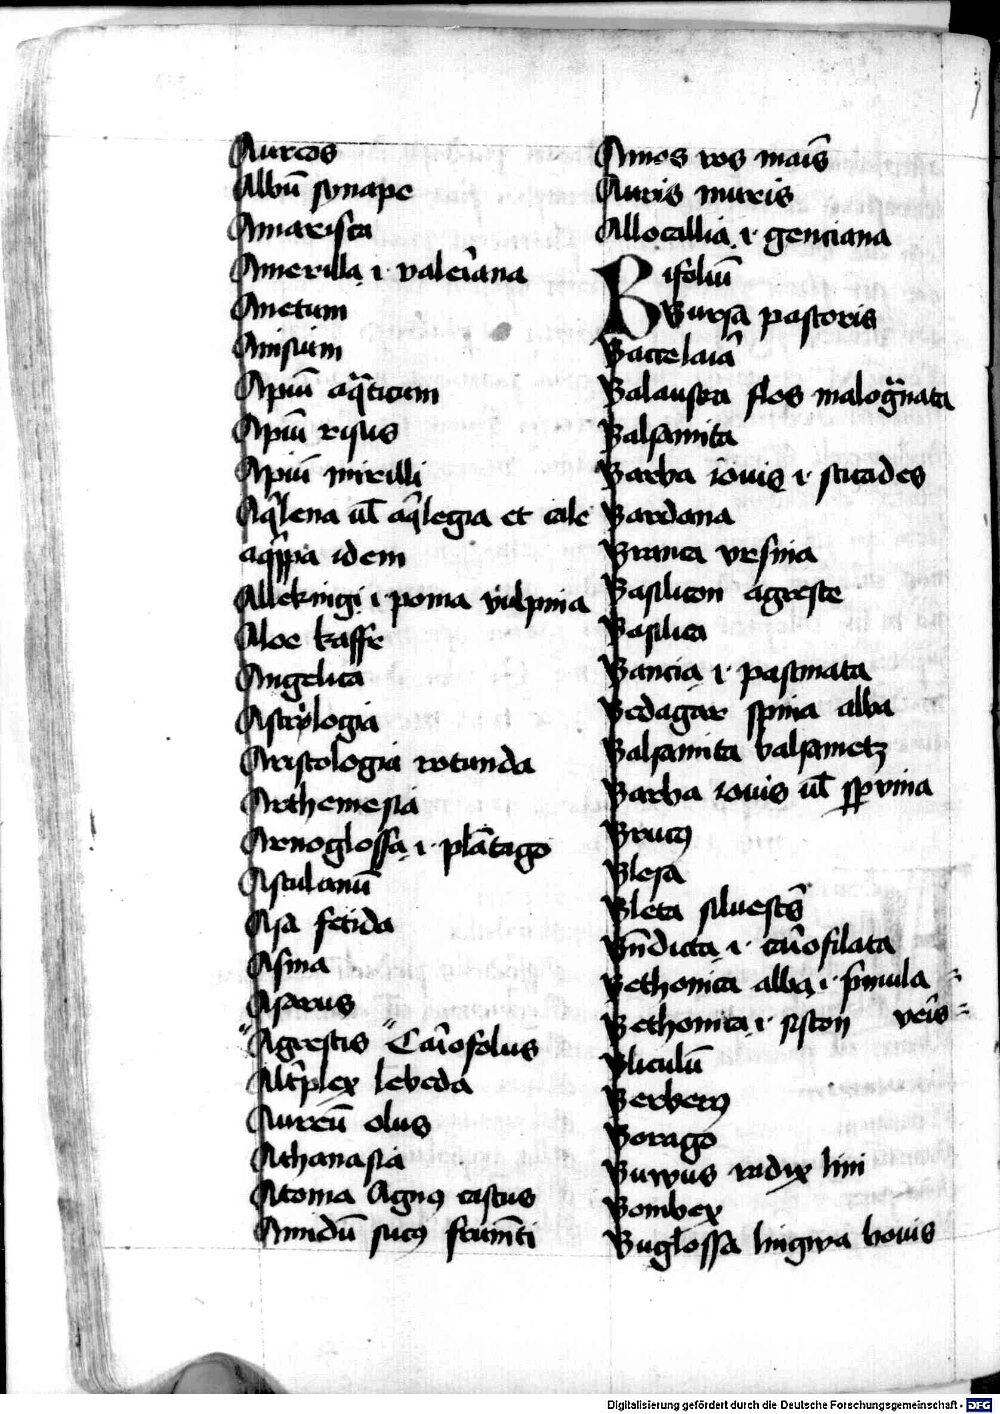 Aureos
Albū synape
Amarisca
Amerilla .i. valeriana
Anetum
Anisum
Apiū aq̄ticum
Apiū risus
Apiū mirilli
Aq̄lena ul̄ aq̄legia et cale
idem
Allekingi .i. poma vulpina
Aloe kaffe
Angelica
Astrologia
Aristologia rotunda
Arthemesia
Arnoglossa .i. plātago
Asculanū
Asa fetida
Asma
Asarus
"Agrestis "Cariofolus
Altiplex lebeda
Aureū olus
Athanasia
Atoma Agnꝯ castus
Amidū sucꝯ frumēti
Amos ros maīs
Auris muris
Allocallia .i. genciana
Bifoliū
Bursa pastoris
Baccelaia
Balaustra flos malogᵃnata
Balsamita
Barba iouis .i. sticades
Bardana
Branca vrsina
Basilicon agreste
Basilica
Bancia .i. pastinata
Bedagar spina alba
Balsamita balsametz
Barba iouis ul̄
Brucꝯ
Blesa
Bleta siluestr̄
Bn̄dicta .i. gariofilata
Bethonica alba .i. pimula
veris
Bethonica .i.
Bliculū
Berberꝯ
Borago
radix lini
Bombex
Buglossa lingwa bouis
Digitalisierung gefördert durch die Deutsche Forschungsgemeinschaft - DFG